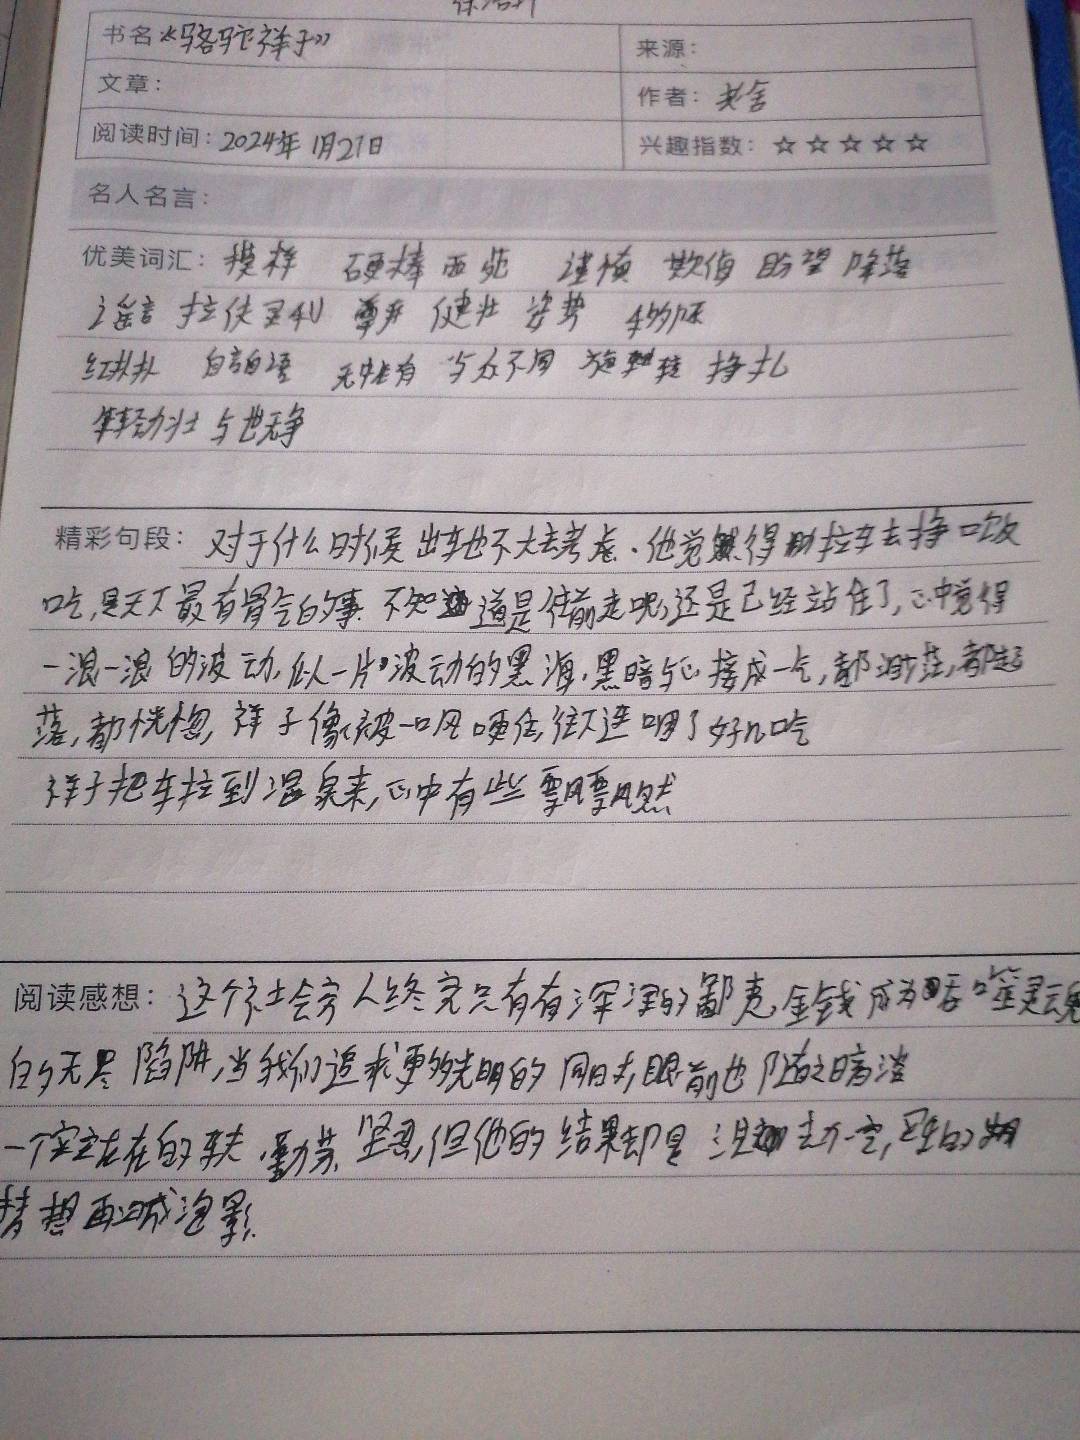 书名《骆驼祥子》
来源：
文章：
作者：老舍
阅读时间：2024年1月27日
兴趣指数：☆☆☆☆☆
名人名言：
优美词汇：模样 硬棒 西苑 谨慎 欺侮 盼望 降落
谣言 拉住 灵利 尊严 健壮 姿势
红扑扑 自言自语 无中生有 与众不同 旋转 挣扎
年轻力壮 与世无争
精彩句段：对于什么时候出车也不大去考虑．他觉得拉车去挣口饭
吃，是天下最有骨气的事．不知道是往前走呢，还是已经站住了，心中觉得
一浪一浪的波动，似一片波动的黑海，黑暗与心接成一气，都渺茫，都起
落，都恍惚，祥子像被一口风哽住，往下连咽了好几吃
祥子把车拉到温泉来，心中有些飘飘然
阅读感想：这个社会穷人终究只有有深深的鄙夷，金钱成为吞噬灵魂
的无尽陷阱，当我们追求更多光明的同时，眼前也随之暗淡
一个实实在在的车夫，勤劳、坚忍，但他的结果却是
梦想再次成泡影．